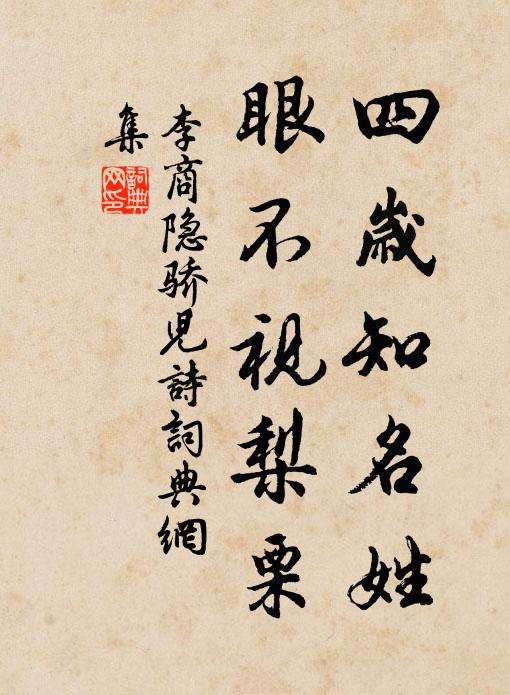 四歲知名姓
眼不視梨栗
李商隐骄児詩詞典網
集
詞典网印